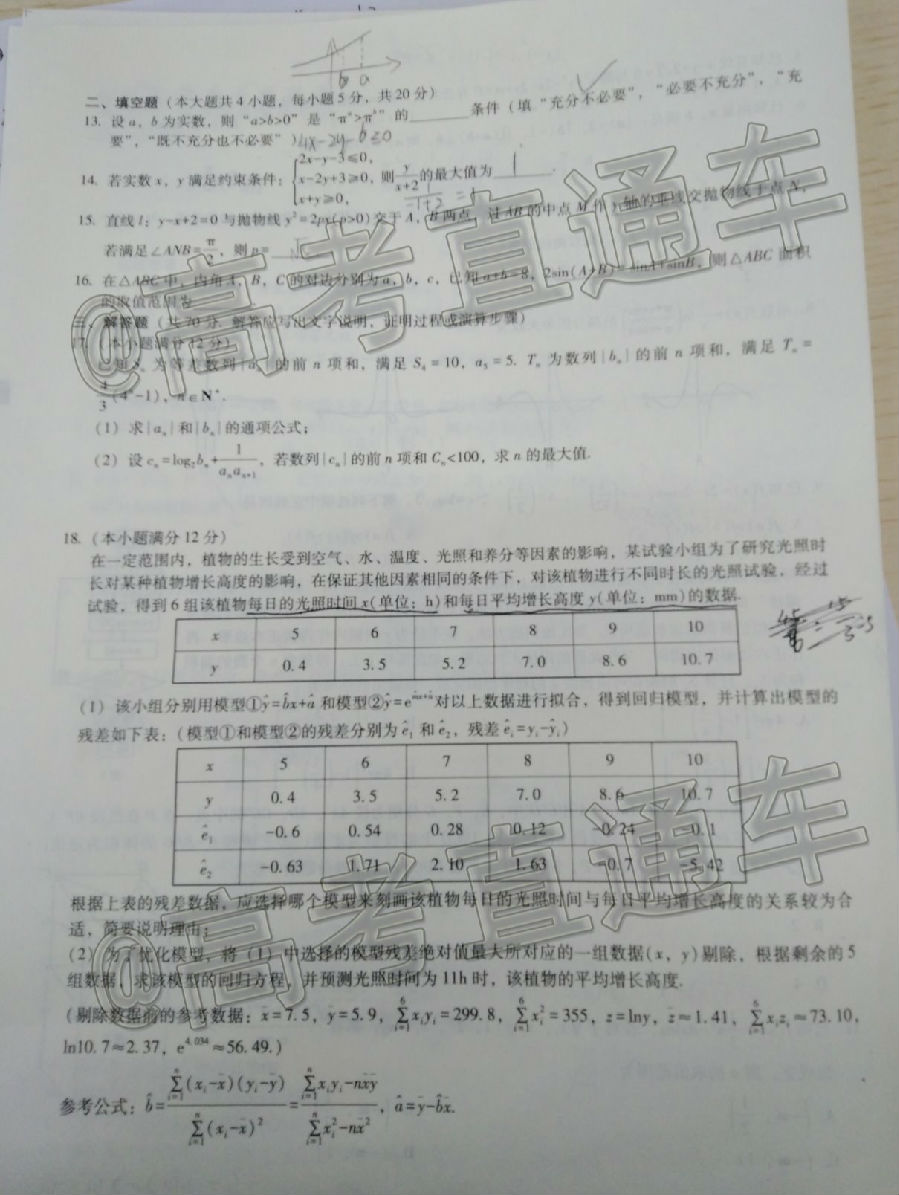 b a
二、填空题（本大题共4小题，每小题5分，共20分）
13. 设a，b为实数，则“a>b>0”是“πᵃ>πᵇ”的________条件（填“充分不必要”，“必要不充分”，“充
要”，“既不充分也不必要”）
14. 若实数x，y满足约束条件：{2x-y-3≤0, x-2y+3≥0, x+y≥0, 则y/(x+2)的最大值为 1 .
15. 直线l：y-x+2=0与抛物线y²=2px(p>0)交于A，B两点，过AB的中点M作y轴的垂线交抛物线于点N，
若满足∠ANB=π/2，则p=
16. 在△ABC中，内角A，B，C的对边分别为a，b，c，已知a+b=8，2sin(A+B)=sinA+sinB，则△ABC面积
的取值范围为
三、解答题（共70分. 解答应写出文字说明，证明过程或演算步骤）
17.（本小题满分12分）
已知Sₙ为等差数列{aₙ}的前n项和，满足S₄=10，a₅=5. Tₙ为数列{bₙ}的前n项和，满足Tₙ=
4/3(4ⁿ-1)，n∈N*.
（1）求{aₙ}和{bₙ}的通项公式；
（2）设cₙ=log₂bₙ+1/(aₙaₙ₊₁)，若数列{cₙ}的前n项和Cₙ<100，求n的最大值.
18.（本小题满分12分）
在一定范围内，植物的生长受到空气、水、温度、光照和养分等因素的影响，某试验小组为了研究光照时
长对某种植物增长高度的影响，在保证其他因素相同的条件下，对该植物进行不同时长的光照试验，经过
试验，得到6组该植物每日的光照时间x(单位：h)和每日平均增长高度y(单位：mm)的数据.
x 5 6 7 8 9 10
y 0.4 3.5 5.2 7.0 8.6 10.7
（1）该小组分别用模型①ŷ=b̂x+â和模型②ŷ=e^(m̂x+n̂)对以上数据进行拟合，得到回归模型，并计算出模型的
残差如下表：（模型①和模型②的残差分别为ê₁和ê₂，残差êᵢ=yᵢ-ŷᵢ）
x 5 6 7 8 9 10
y 0.4 3.5 5.2 7.0 8.6 10.7
ê₁ -0.6 0.54 0.28 0.12 -0.24 -0.1
ê₂ -0.63 1.71 2.10 1.63 -0.7 -5.42
根据上表的残差数据，应选择哪个模型来刻画该植物每日的光照时间与每日平均增长高度的关系较为合
适，简要说明理由；
（2）为了优化模型，将（1）中选择的模型残差绝对值最大所对应的一组数据(x，y)剔除，根据剩余的5
组数据，求该模型的回归方程，并预测光照时间为11h时，该植物的平均增长高度.
（剔除数据前的参考数据：x̄=7.5，ȳ=5.9，∑(i=1→6)xᵢyᵢ=299.8，∑(i=1→6)xᵢ²=355，z=lny，z̄≈1.41，∑(i=1→6)xᵢzᵢ≈73.10，
ln10.7≈2.37，e^4.034≈56.49.）
参考公式：b̂=∑(i=1→n)(xᵢ-x̄)(yᵢ-ȳ)/∑(i=1→n)(xᵢ-x̄)²=(∑(i=1→n)xᵢyᵢ-nx̄ȳ)/(∑(i=1→n)xᵢ²-nx̄²)，â=ȳ-b̂x̄.
@高考直通车
@高考直通车